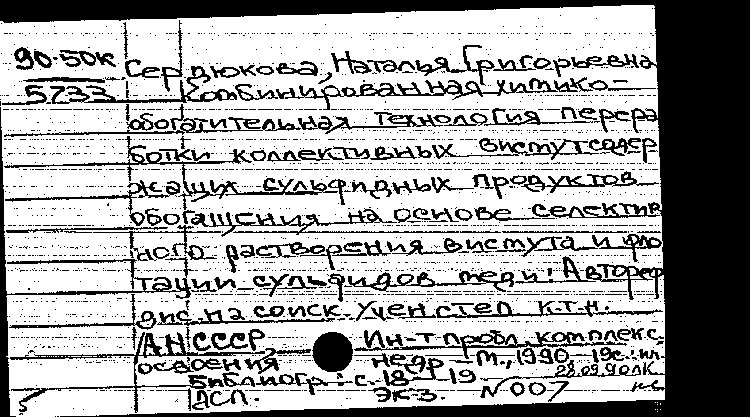 90-50к
5733
Сердюкова, Наталья Григорьевна
Комбинированная химико-
обогатительная технология перера
ботки коллективных висмутсодер
жащих сульфидных продуктов
обогащения на основе селектив
ного растворения висмута и фло
тации сульфидов меди: Автореф
дис. на соиск. учен. степ. к.т.н.
АН СССР, Ин-т пробл. комплекс.
освоения недр - М., 1990. - 19с.: ил.
Библиогр.: с. 18-19
28.09.90
ДСП. Экз. N 007
5